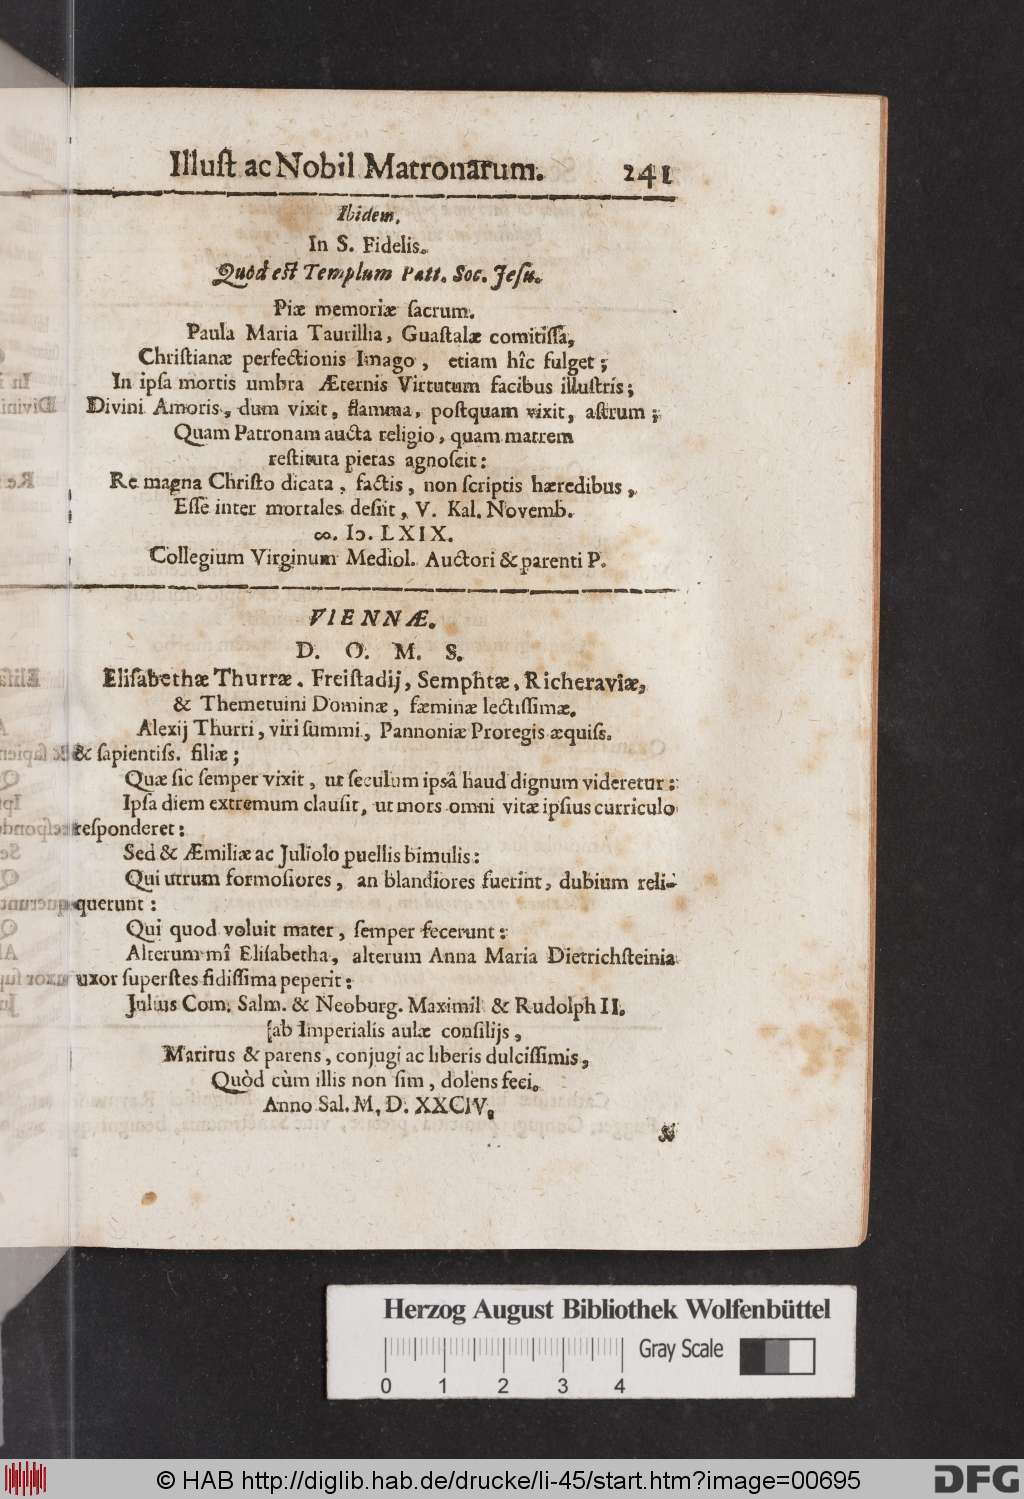 Illuſt ac Nobil Matronarum. 241
Ibidem.
In S. Fidelis.
Quòd eſt Templum Patt. Soc. Jeſu.
Piæ memoriæ ſacrum.
Paula Maria Taurillia, Guaſtalæ comitiſſa,
Chriſtianæ perfectionis Imago, etiam hîc fulget;
In ipſa mortis umbra Æternis Virtutum facibus illuſtris;
Divini Amoris, dum vixit, flamma, poſtquam vixit, aſtrum;
Quam Patronam aucta religio, quam matrem
reſtituta pietas agnoſcit:
Re magna Chriſto dicata, factis, non ſcriptis hæredibus,
Eſſe inter mortales desiit, V. Kal. Novemb.
∞. Iↄ. LXIX.
Collegium Virginum Mediol. Auctori & parenti P.
VIENNÆ.
D. O. M. S.
Eliſabethæ Thurræ. Freiſtadij, Semphtæ, Richeraviæ,
& Themetuini Dominæ, fæminæ lectiſſimæ.
Alexij Thurri, viri ſummi, Pannoniæ Proregis æquiſs.
& ſapientiſs. filiæ;
Quæ ſic ſemper vixit, ut ſeculum ipsâ haud dignum videretur:
Ipſa diem extremum clauſit, ut mors omni vitæ ipſius curriculo
reſponderet:
Sed & Æmiliæ ac Juliolo puellis bimulis:
Qui utrum formoſiores, an blandiores fuerint, dubium reli-
querunt:
Qui quod voluit mater, ſemper fecerunt:
Alterum mî Eliſabetha, alterum Anna Maria Dietrichſteinia
uxor ſuperſtes fidiſſima peperit:
Julius Com. Salm. & Neoburg. Maximil & Rudolph II.
ſab Imperialis aulæ conſilijs,
Maritus & parens, conjugi ac liberis dulciſſimis,
Quòd cùm illis non ſim, dolens feci.
Anno Sal. M. D. XXCIV.
Herzog August Bibliothek Wolfenbüttel
Gray Scale
0 1 2 3 4
© HAB http://diglib.hab.de/drucke/li-45/start.htm?image=00695
DFG